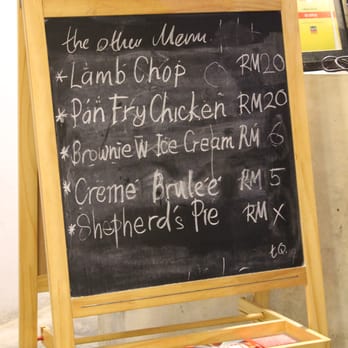 the other Menu.
*Lamb Chop RM20
*Pan Fry Chicken RM20
*Brownie W Ice Cream RM 6
*Creme Brulee RM 5
*Shepherd's Pie RM X
tQ.